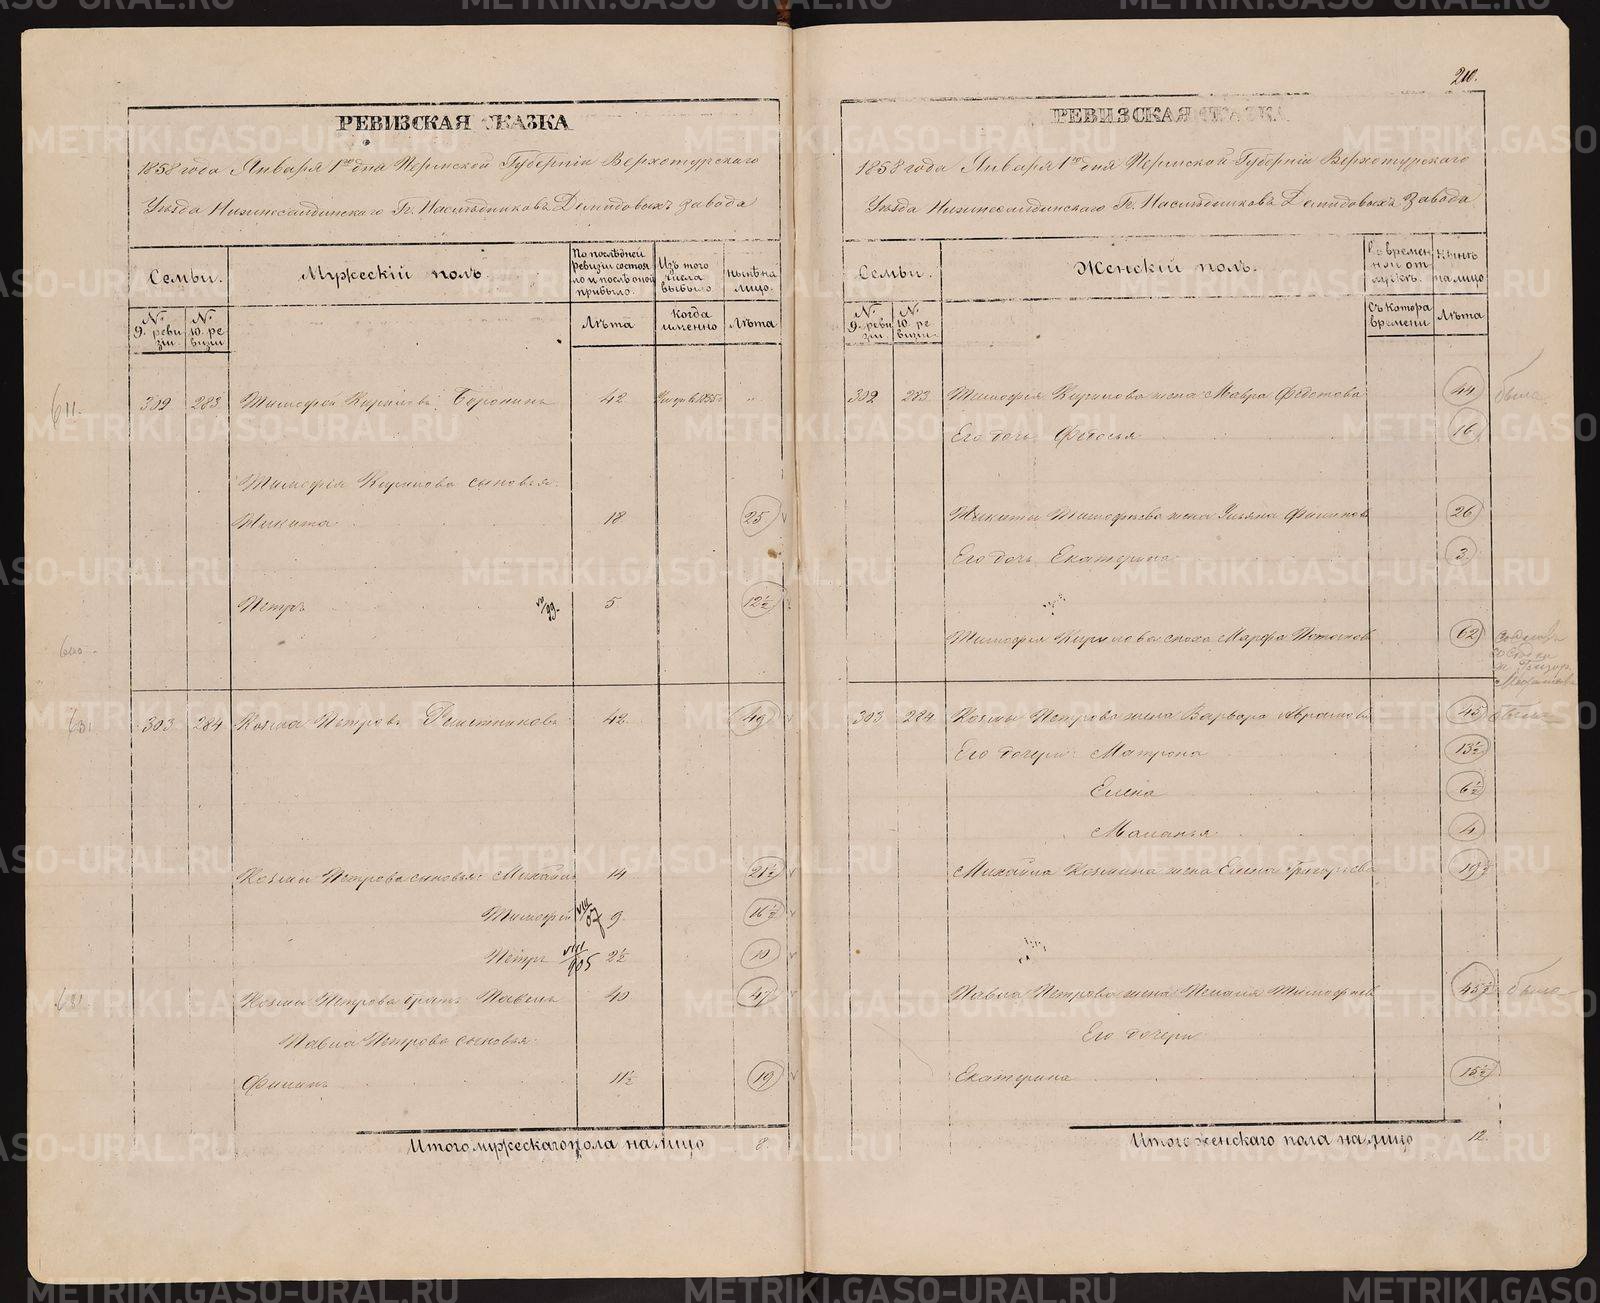 РЕВИЗСКАЯ СКАЗКА
1858 года Января 1го дня Пермской Губерніи Верхотурскаго
Уѣзда Нижнесалдинскаго Гг. Наслѣдниковъ Демидовыхъ завода
Семьи.
Мужескій полъ.
По послѣдней ревизіи состояло и послѣ оной прибыло.
Изъ того числа выбыло
Нынѣ на лицо.
№ 9. ревизіи.
№ 10. ревизіи
Лѣта
Когда именно
Лѣта
611.
302 283 Тимофей Кириловъ Боронинъ 42
Тимофея Кирилова сыновья:
Никита 18 25
Петръ 5 12½
631 303 284 Козма Петровъ Решетниковъ 42 49
Козмы Петрова сыновья: Михайло 14 21½
Тимофей VIII/07 9 16½
Петръ VIII/905 2½ 10
631 Козмы Петрова братъ Павелъ 40 47
Павла Петрова сыновья:
Филипъ 11½ 19
Итого мужескаго пола на лицо 8.
210.
РЕВИЗСКАЯ СКАЗКА
1858 года Января 1го дня Пермской Губерніи Верхотурскаго
Уѣзда Нижнесалдинскаго Гг. Наслѣдниковъ Демидовыхъ Завода
Семьи.
Женскій полъ.
Во временной отлучкѣ.
Нынѣ на лицо
№ 9. ревизіи.
№ 10. ревизіи.
Съ котора времени
Лѣта
302 283 Тимофея Кирилова жена Мавра Федотова 44 была
Его дочь Федосья 16
Никиты Тимофѣева жена Ульяна Филипов 26
Его дочь Екатерина 3
Тимофея Кирилова сноха Марфа Потапов 62
303 284 Козмы Петрова жена Варвара Абрамова 45
Его дочери: Матрона 13½
Елена 6½
Маланья 4
Михайла Козмина жена Елена Григорьева 19½
Павла Петрова жена Пелагия Тимофеев 45½ была
Его дочери
Екатерина 15½
Итого женскаго пола на лицо 12.
METRIKI.GASO-URAL.RU